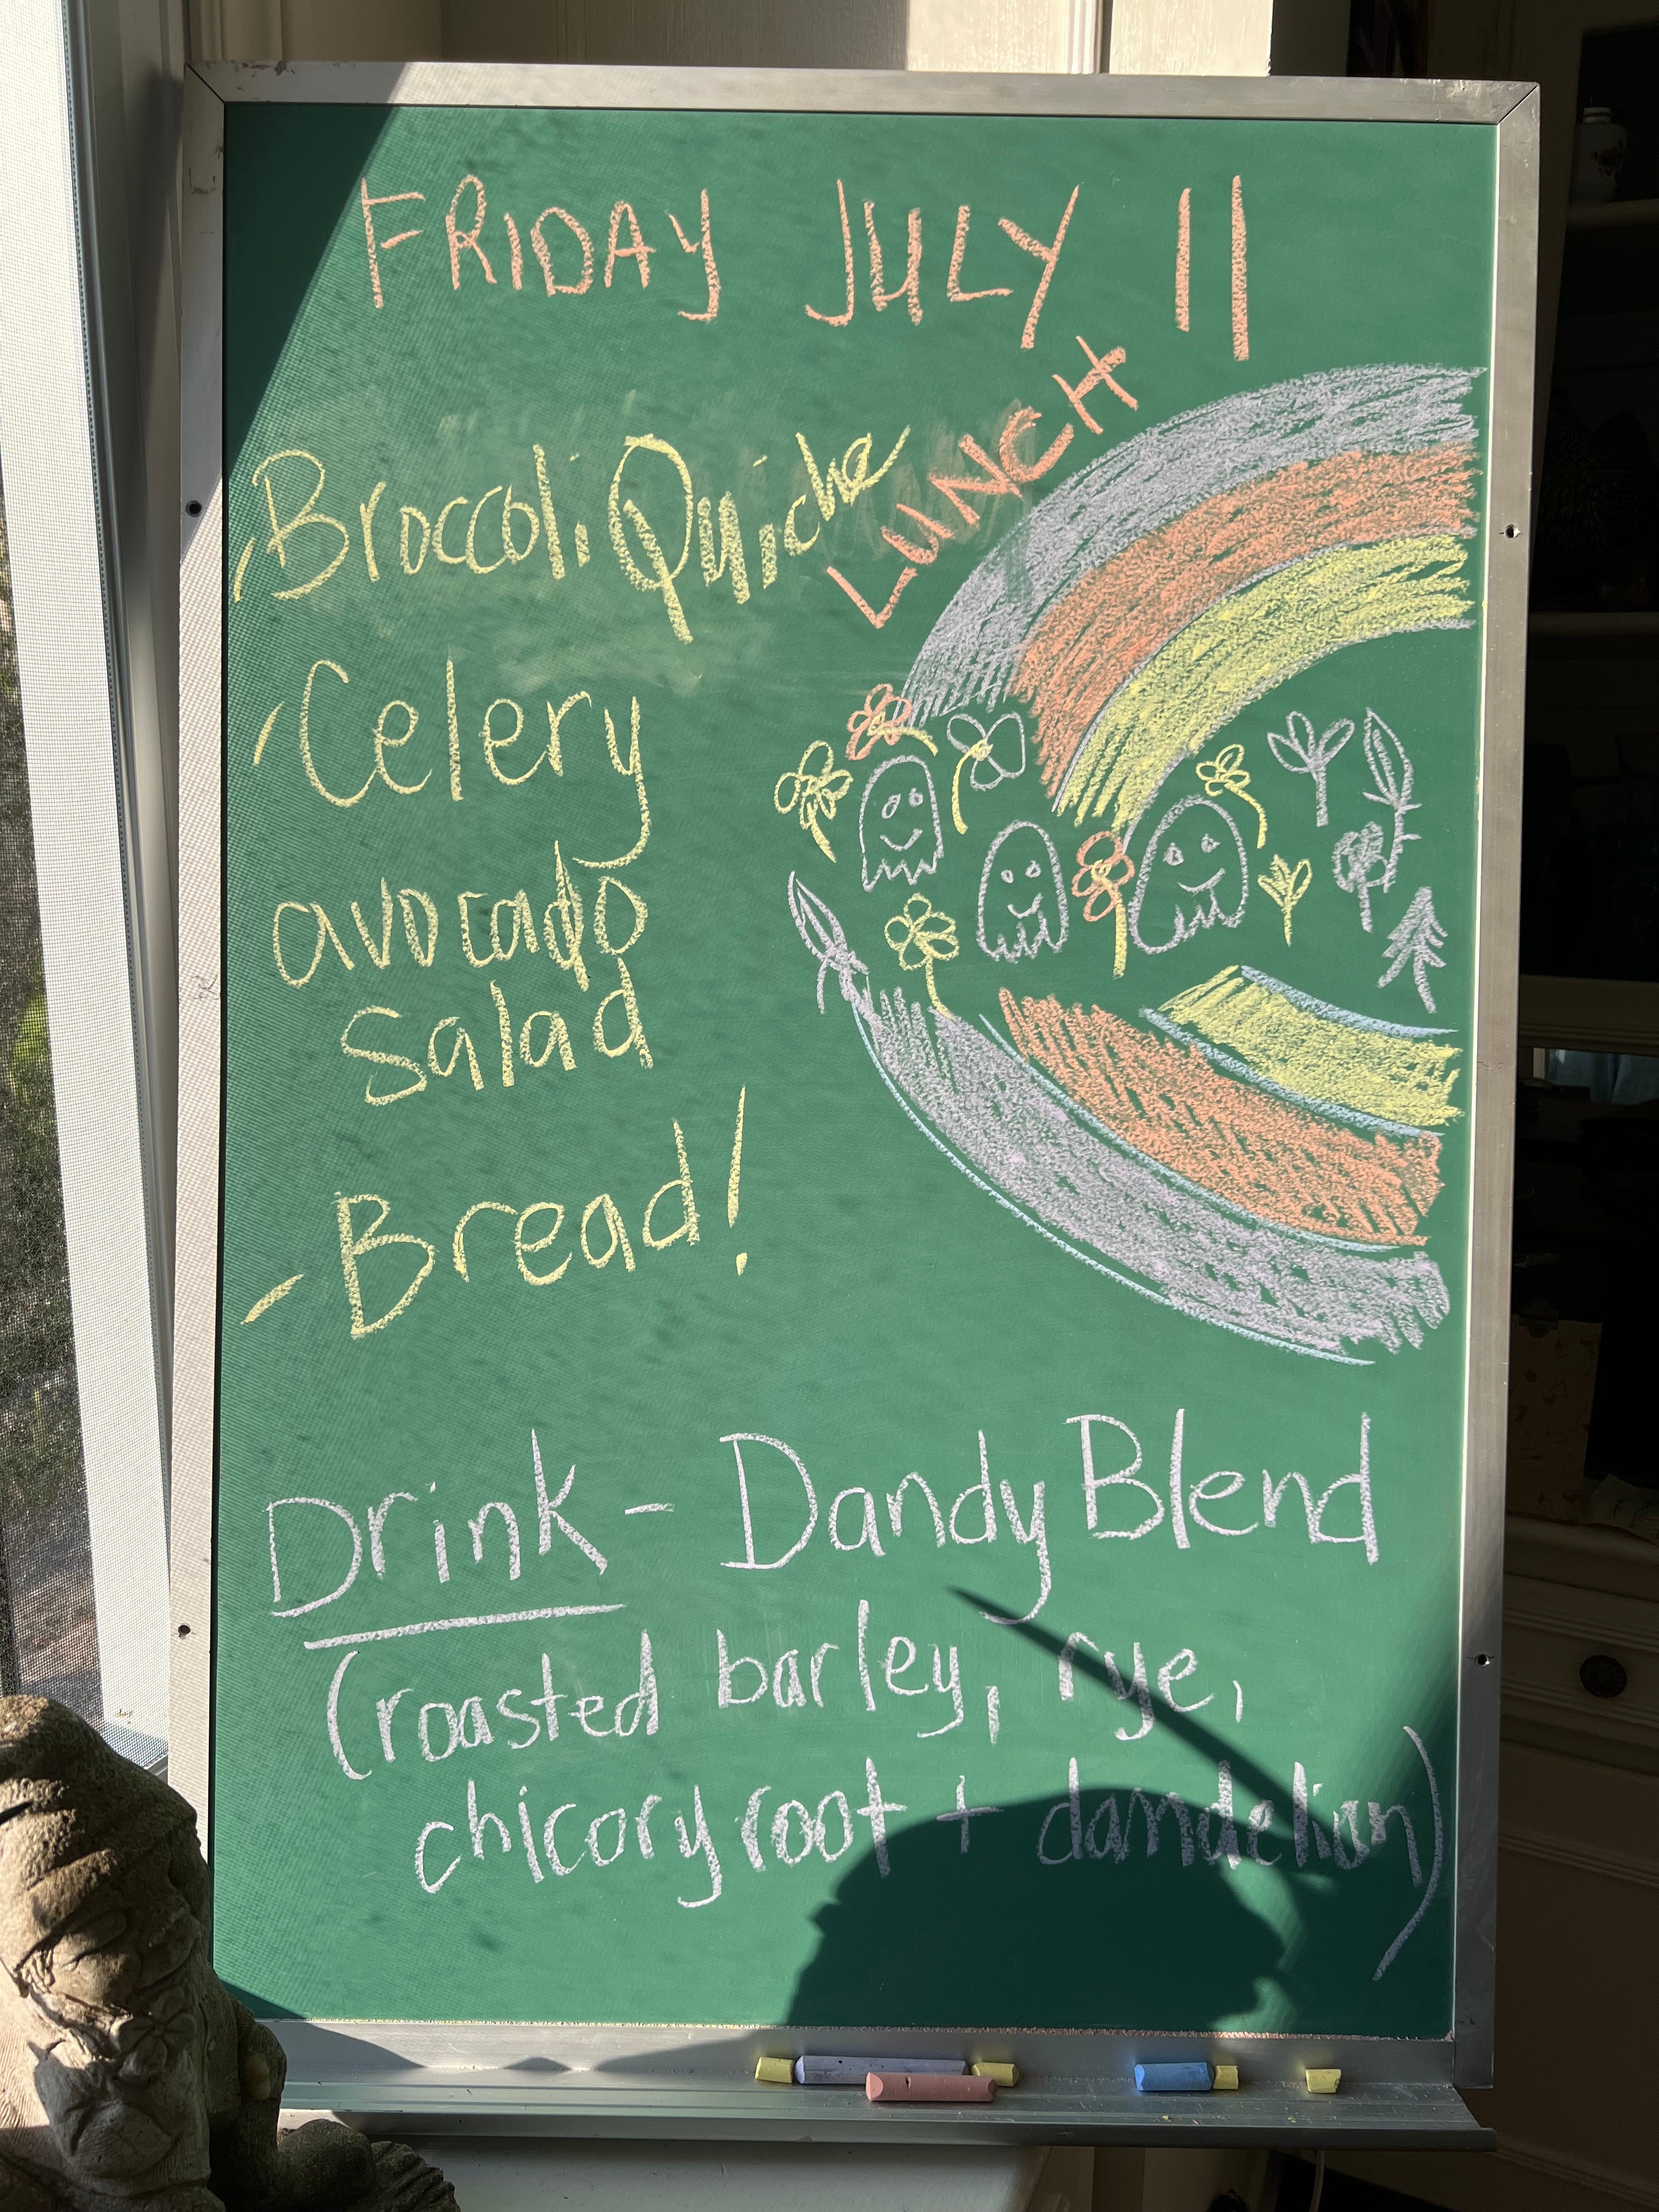 FRIDAY JULY 11
LUNCH
- Broccoli Quiche
- Celery
avocado
salad
- Bread!
Drink - Dandy Blend
(roasted barley, rye,
chicory root + dandelion)